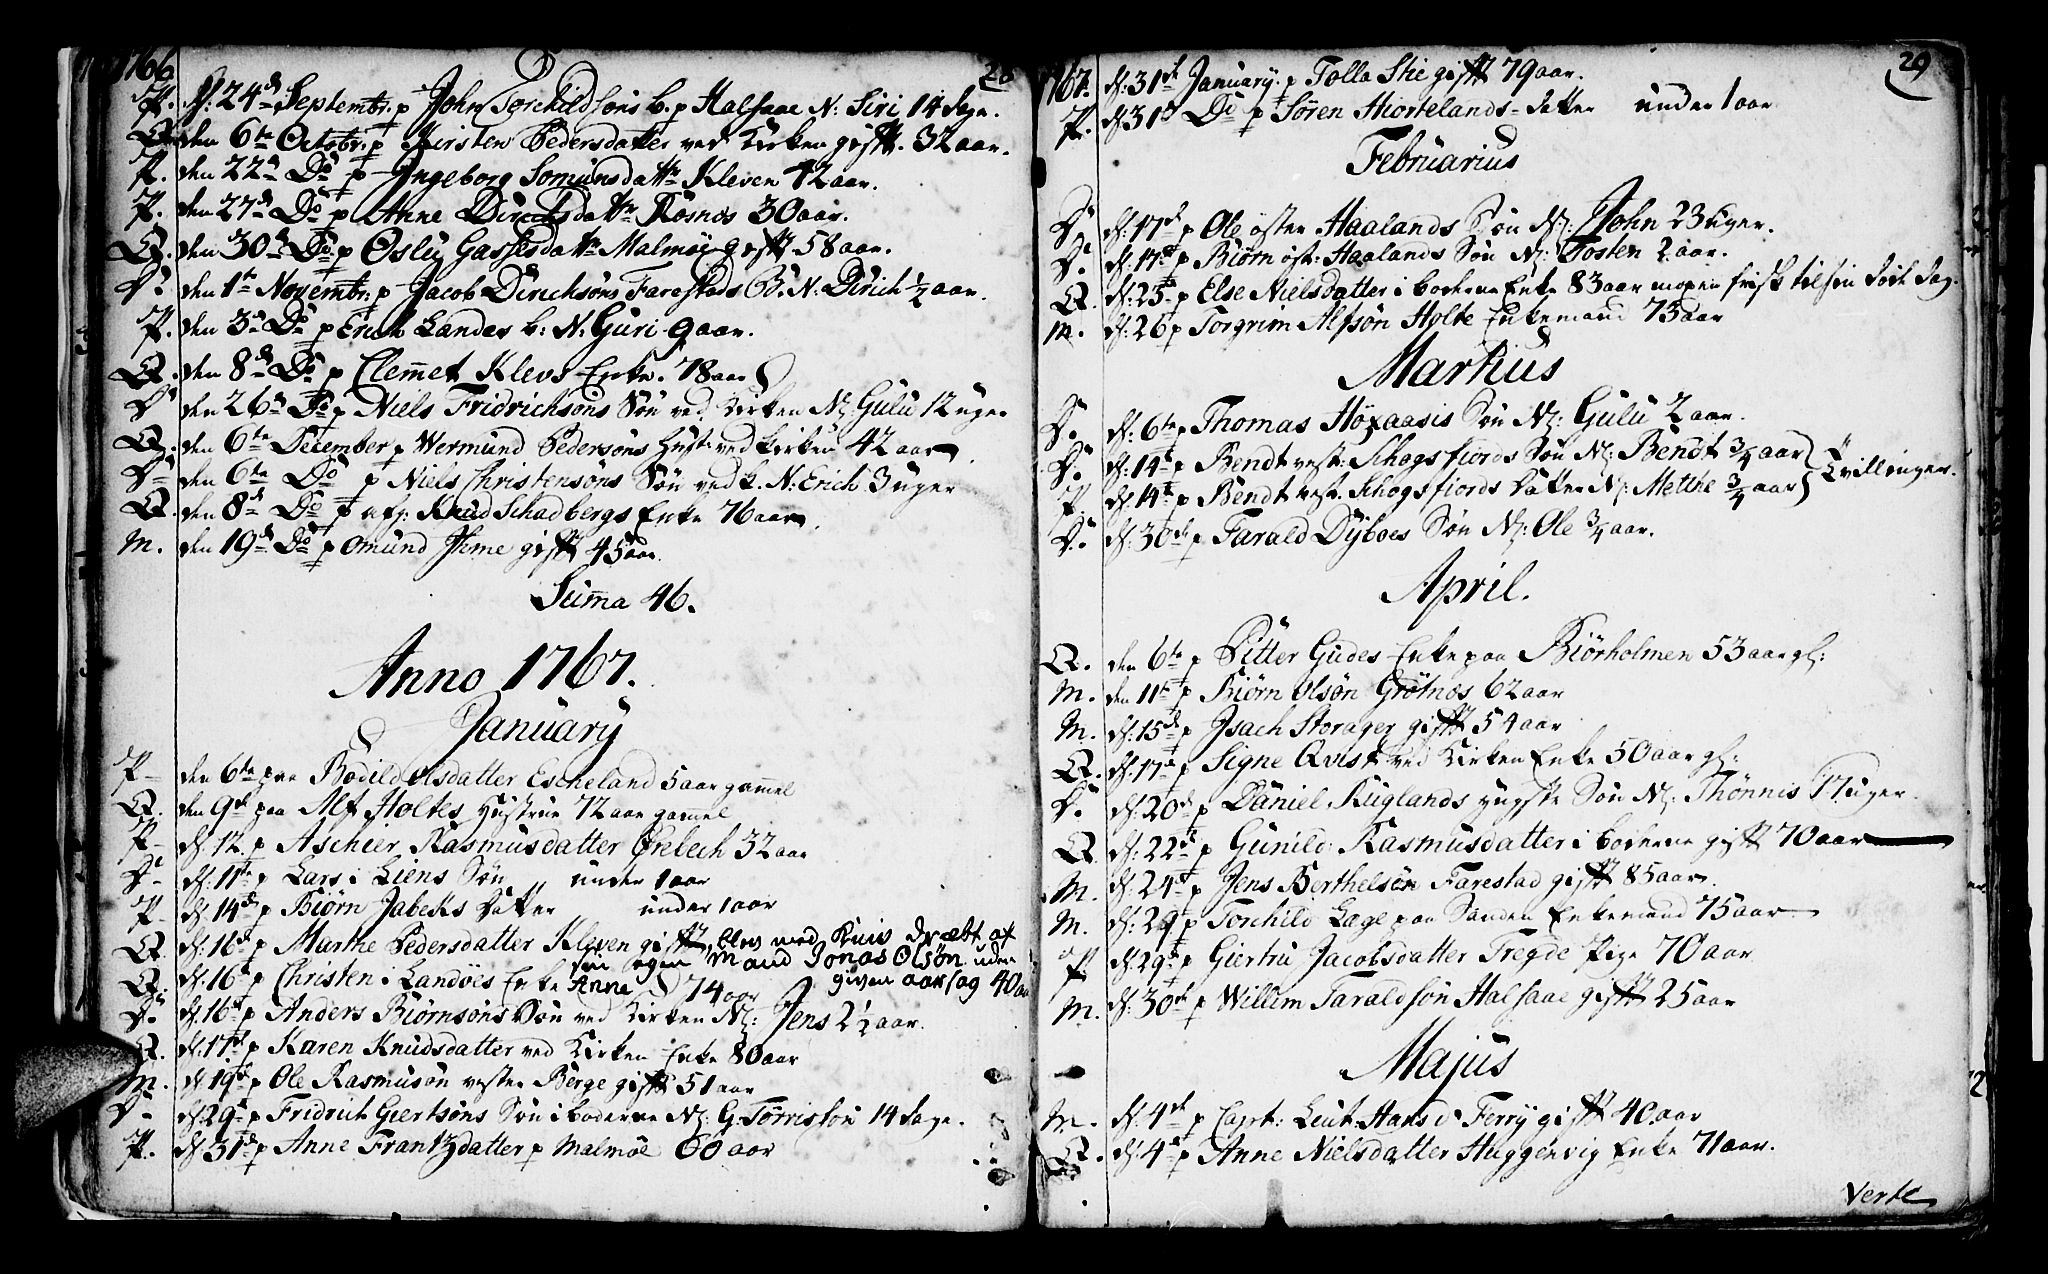 1766 28
P. d: 24de Septembr: p John Torchildsøns b. p Halsaae N: Siri 14 dage.
Q. den 6te Octobr: p Kirsten Pedersdatter ved Kirken gift. 32 aar.
P. den 22de Do p Ingeborg Somunsdattr Kleven 12 aar.
P. den 27de Do p Anne Dirichsdattr Røsnes 30 aar.
Q. den 30de Do p Osluy Gassesdattr Malmøe gift 58 aar.
D: den 1te Novembr: p Jacob Dirichsøns Farestads B. N: Dirich ½ aar.
P. den 3de Do p Erich Landøs b: N: Guri 9 aar.
Q. den 8de Do p Clemmet Klevs Enke. 78 aar
D: den 26de Do p Niels Fridrichsøns Søn ved Kirken N: Gulu 12 uger
Q. den 6te December p Wermund Pedersøns Hust: ved Kirken 42 aar.
D: den 6te Do p Niels Christensøns Søn ved k. N: Erich 3 uger
Q. den 8de Do p afg: Knud Schadbergs Enke 76 aar.
M. den 19de Do p Omund Ihme gift 45 aar.
Summa 46.
Anno 1767.
January
P. den 6te paa Bodild Olsdatter Escheland 5 aar gammel
Q. den 9de paa Alf Holtes Hustrue 72 aar gammel
P. d: 12. p Aschier Rasmusdatter Ørebech 32 aar
D: d: 11te p Lars i Liens Søn under 1 aar
P. d: 14de p Biørn Jabeks datter under 1 aar
Q. d: 16de p Marthe Pedersdatter Kleven gift, blev med Kniv dræbt af
sin egen Mand Jonas Olsøn uden
Q. d: 16de p Christen i Landøes Enke Anne 74 aar given aarsag 40 aar
D: d: 16de p Anders Biørnsøns Søn ved Kirken N: Jens 2½ aar.
Q. d: 17de p Karen Knudsdatter ved Kirken Enke 80 aar
M. d: 19de p Ole Rasmusøn vester Berge gift 51 aar
D: d: 29de p Fridrich Giertsøns Søn i boderne N: G: Torrison 14 dage.
P. d: 31de p Anne Frantzdatter p Malmøe 60 aar
1767. 29
d: 31de January. p Tolla Skie gift 79 aar.
P. d: 31de Do p Søren Hiortelands datter under 1 aar
Februarius
D: d: 17de p Ole øster Haalands Søn N: John 23 uger.
D: d: 17de p Biørn øst: Haalands Søn N: Tosten 2 aar.
Q. d: 25de p Else Nielsdatter i boderne Enke 83 aar megen frisk til sin døde dag.
M. d: 26 p Torgrim Alfsøn Holte Enkemand 73 aar
Martius
D: d: 6te p Thomas Høyaasis Søn N: Gulu 2 aar.
D: d: 14de p Bendt vest: Schogsfiords Søn N: Bendt ¾ aar
P. d: 14de p Bendt vest: Schogsfiords datter N: Metthe ¾ aar } Tvillinger.
D: d: 30de p Tarald Dyboes Søn N: Ole ¾ aar.
April.
Q. den 6te p Pitter Gudes Enke paa Biørholmen 53 aar gl:
M. den 11te p Biørn Olsøn Grøtnes 62 aar
M. d: 15de p Isach Storager gift 54 aar
Q. d: 17de p Signe Qvist ved Kirken Enke 50 aar gl:
D: d: 20de p Daniel Kuglands yngste Søn N: Thønnis 17 uger.
Q. d: 22de p Gunild Rasmusdatter i boderne gift 70 aar
M. d: 24de p Jens Berthelsen Farestad gift 85 aar.
M. d: 29 p Torchild Lage paa Sanden Enkemand 75 aar
P. d: 29de p Giertru Jacobsdatter Tregde Pige 70 aar
M. d: 30te p Willum Taraldsøn Halsaae gift 25 aar
Majus
M. d: 4de p Capt: Leut: Hans d' Ferry gift 40 aar
Q. d: 4de p Anne Nielsdatter Huggenvig Enke 71 aar.
Verte